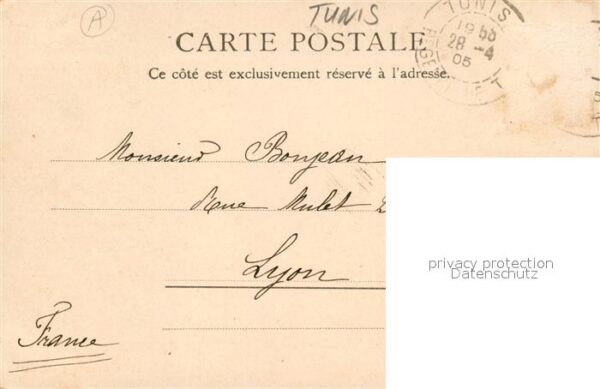 A
TUNIS
TUNIS
19 50
28 -4
05
CARTE POSTALE
Ce côté est exclusivement réservé à l'adresse.
Monsieur Bonjean
Rue Mulet 2
Lyon
France
privacy protection
Datenschutz